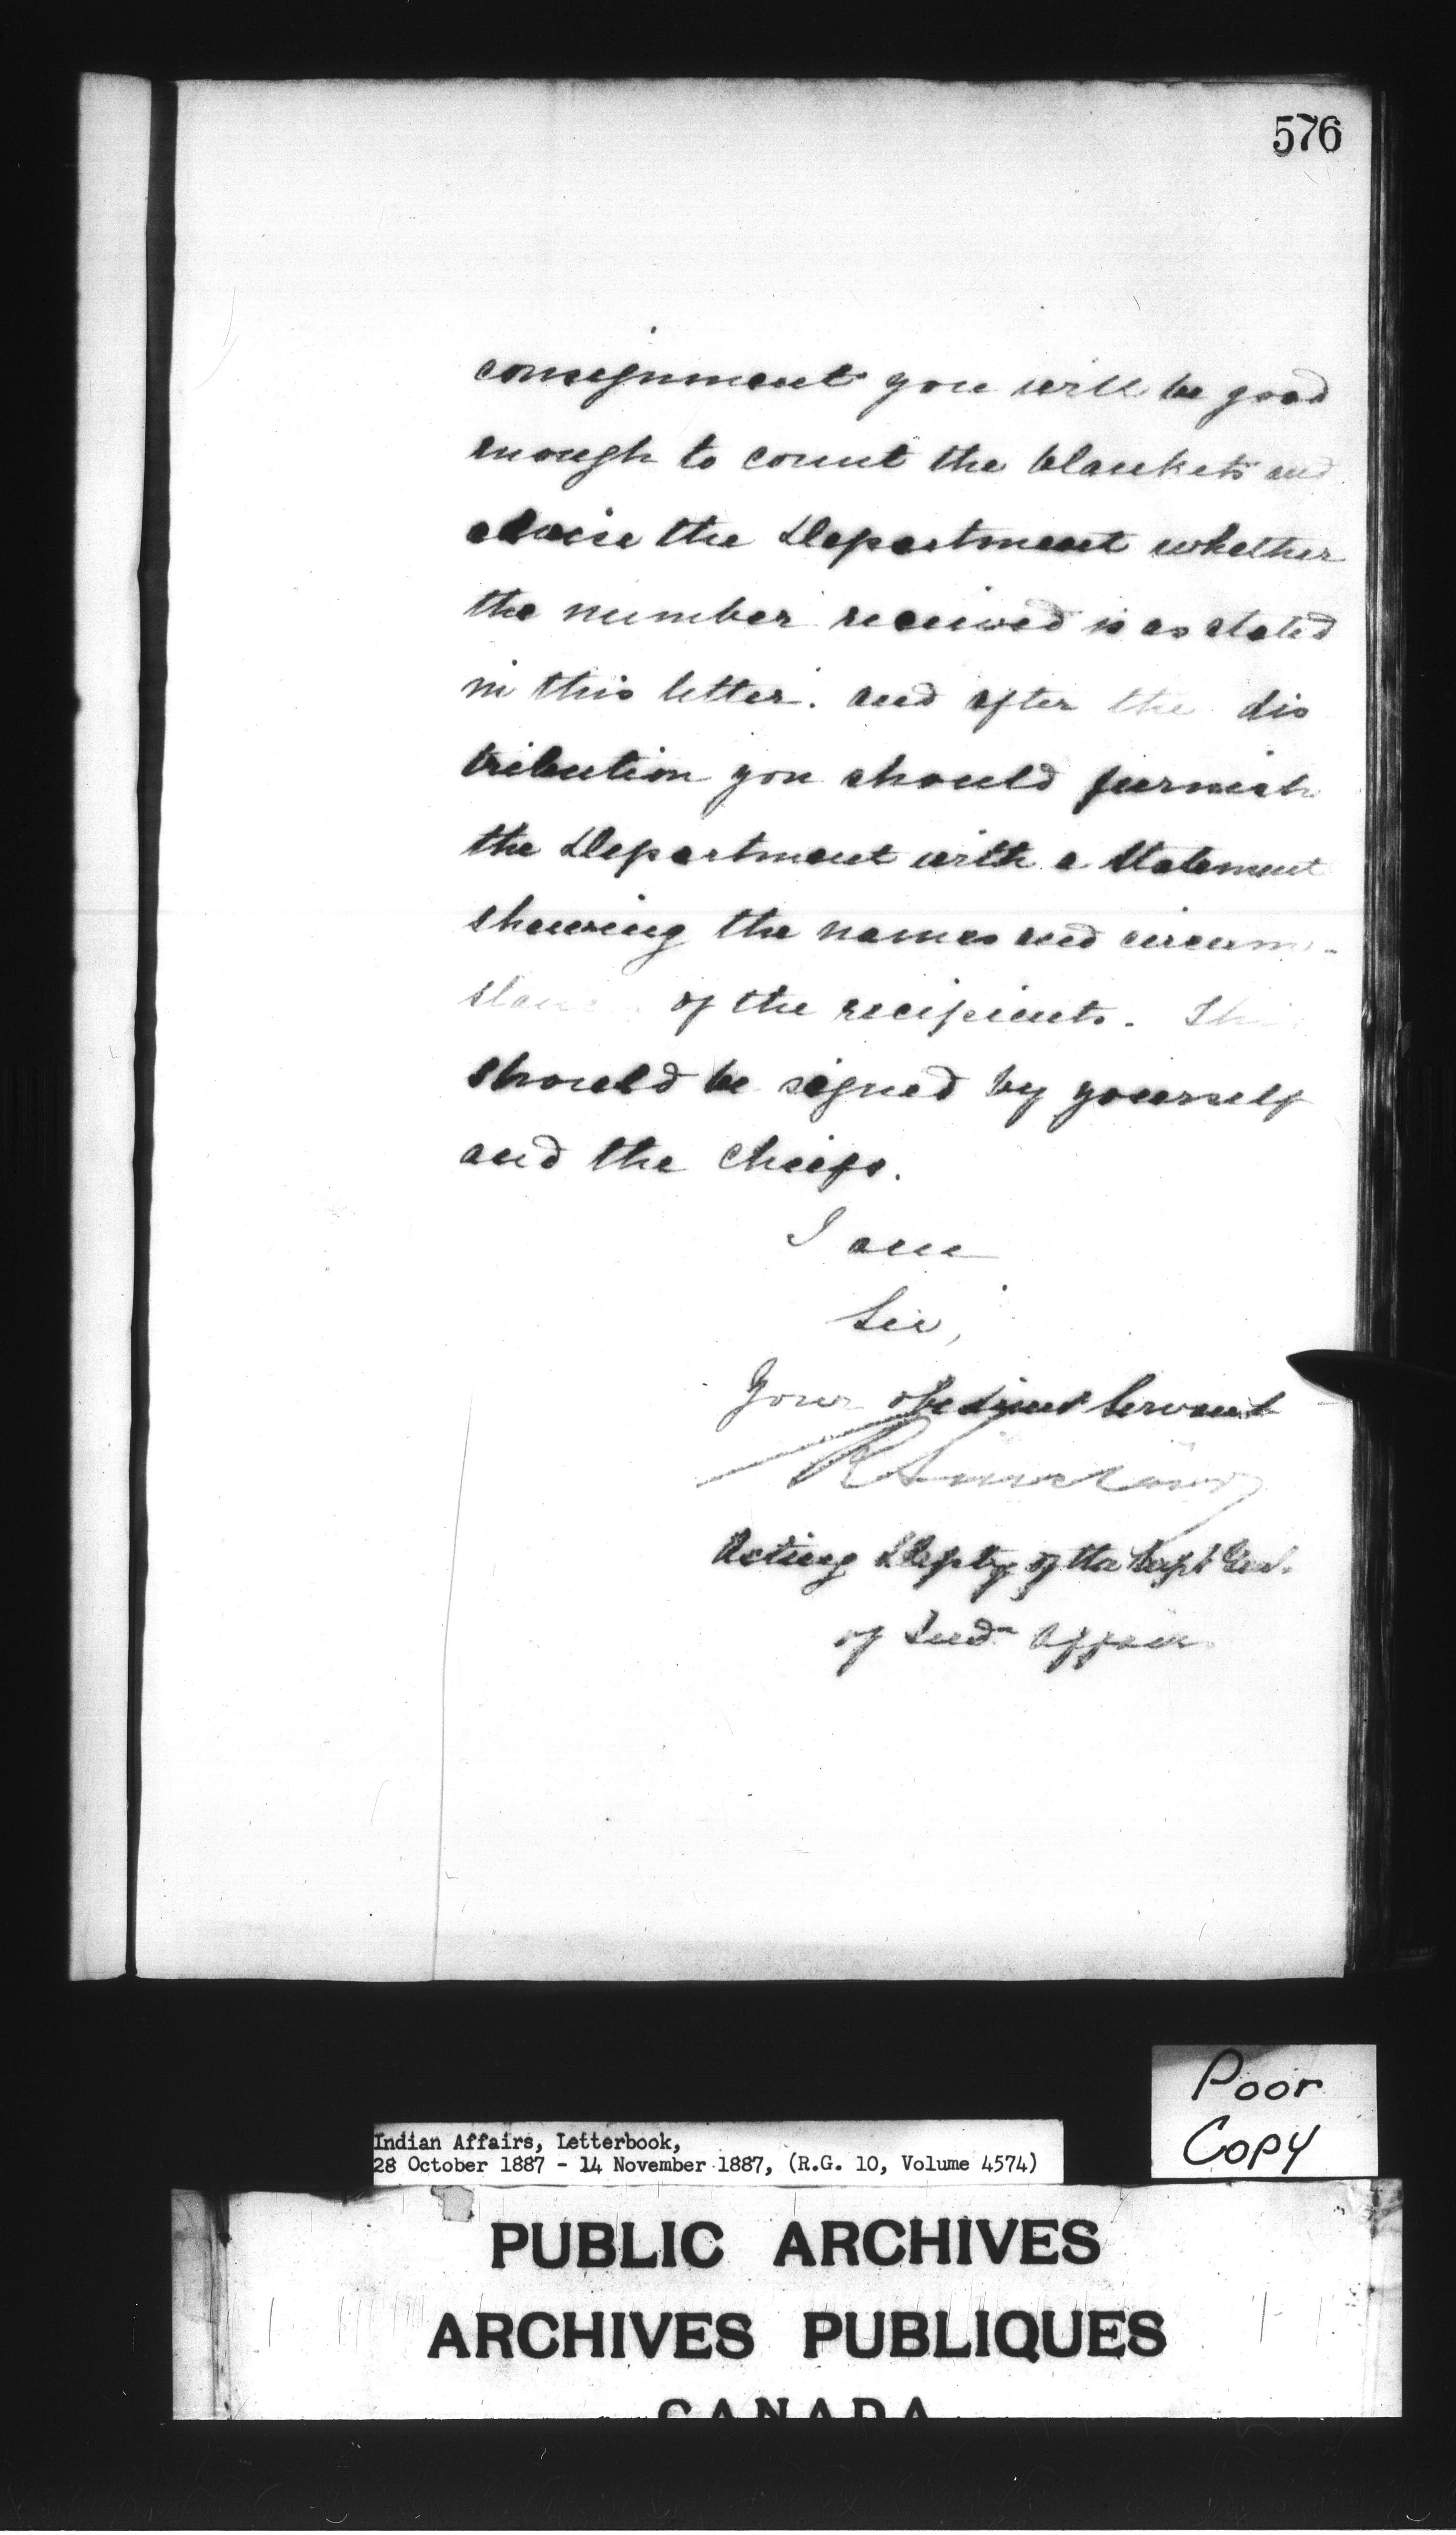 576
consignment you will be good
enough to count the blankets and
advise the Department whether
the number received is as stated
in this letter. and after the dis
tribution you should furnish
the Department with a Statement
shewing the names and circum-
of the recipients.
should be signed by yourself
and the chiefs.
I am
Sir,
Your obedient Servant
R Sinclair
Acting Depty of the Supt Genl.
of Indn Affairs
Poor
Copy
Indian Affairs, Letterbook,
28 October 1887 - 14 November 1887, (R.G. 10, Volume 4574)
PUBLIC ARCHIVES
ARCHIVES PUBLIQUES
CANADA